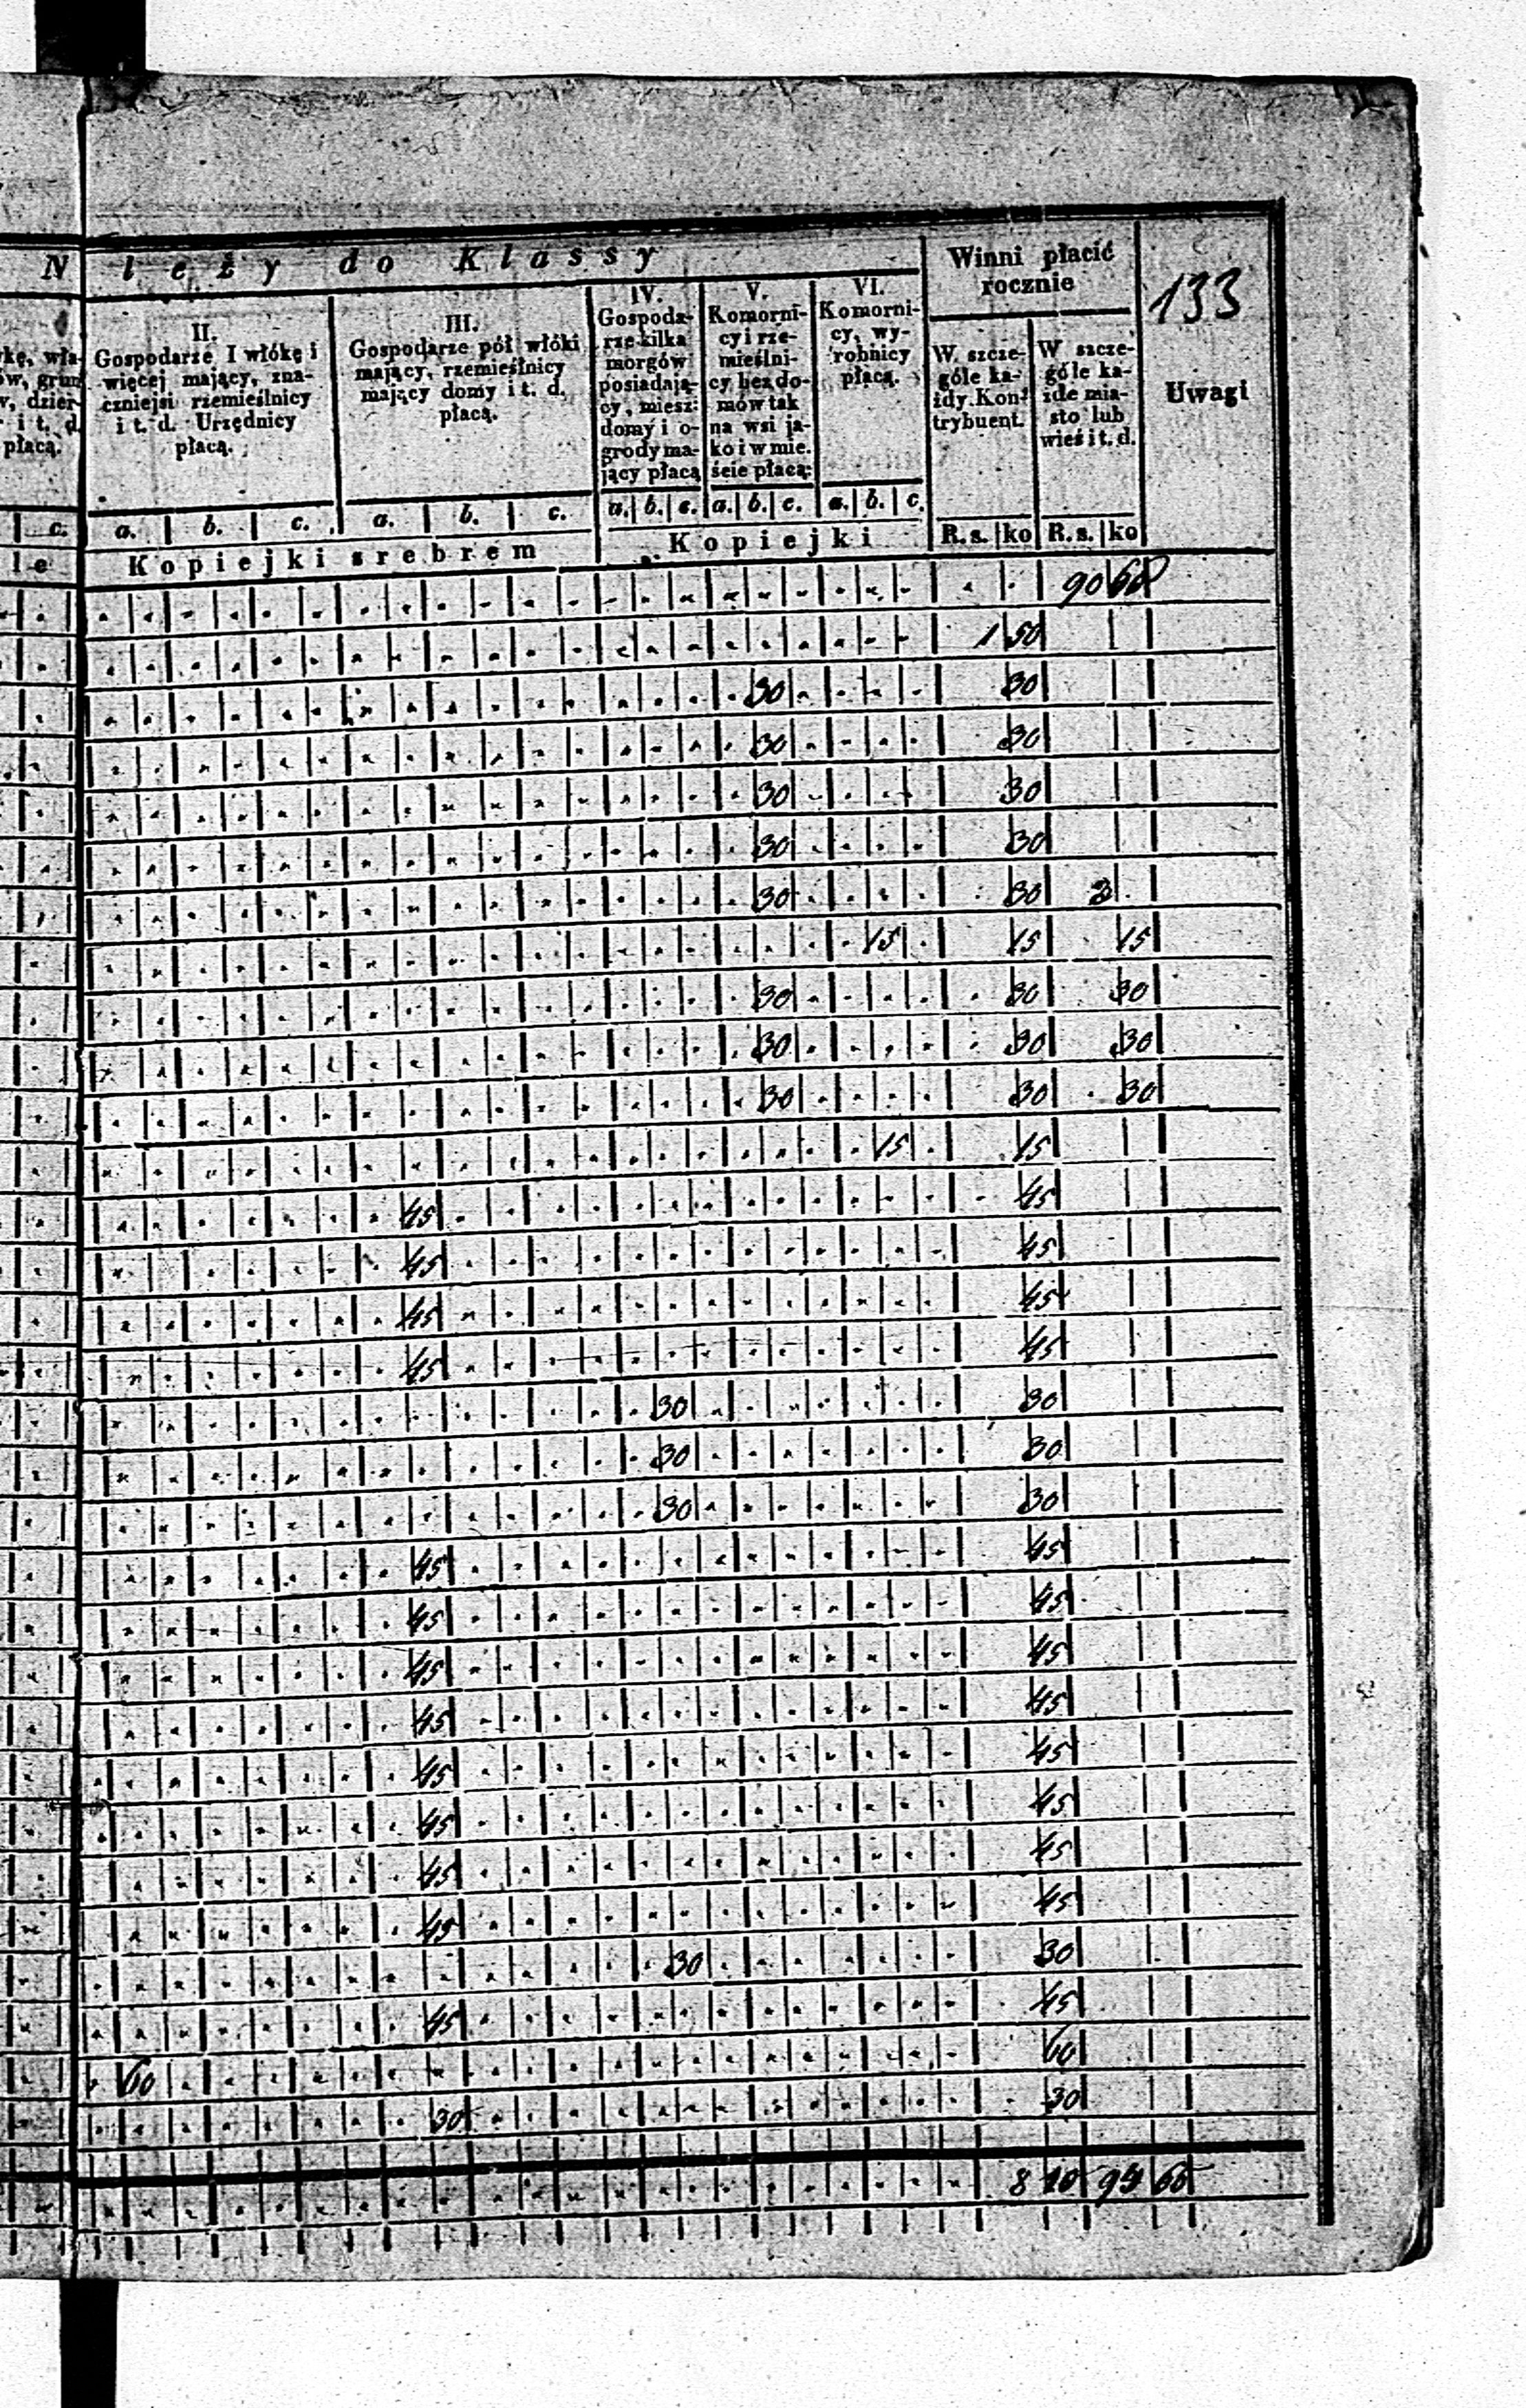 N l e ż y do K l a s s y
Winni płacić
rocznie
133
II.
Gospodarze I włókę i
więcej mający, zna-
czniejsi rzemieślnicy
i t. d. Urzędnicy
płacą.
III.
Gospodarze pół włóki
mający, rzemieślnicy
mający domy i t. d.
płacą.
IV.
Gospoda-
rze kilka
morgów
posiadają-
cy, miesz:
domy i o-
grody ma-
jący płacą
V.
Komorni-
cy i rze-
mieślni-
cy bez do-
mów tak
na wsi ja-
ko i w mie.
ście płacą:
VI.
Komorni-
cy, wy-
robnicy
płacą.
W szcze-
góle ka-
żdy Kon-
trybuent.
W szcze-
góle ka-
żde mia-
sto lub
wieś i t. d.
Uwagi
płacą.
c. a. b. c. a. b. c. a. b. c. a. b. c. a. b. c.
R. s. ko R. s. ko
le Kopiejki srebrem Kopiejki
90 60
1 50
30 30
30 30
30 30
30 30
30 30 3
15 15 15
30 30 30
30 30 30
30 30 30
15 15
45 45
45 45
45 45
45 45
30 30
30 30
30 30
45 45
45 45
45 45
45 45
45 45
45 45
45 45
45 45
30 30
45 45
60 60
30 30
8 10 94 65